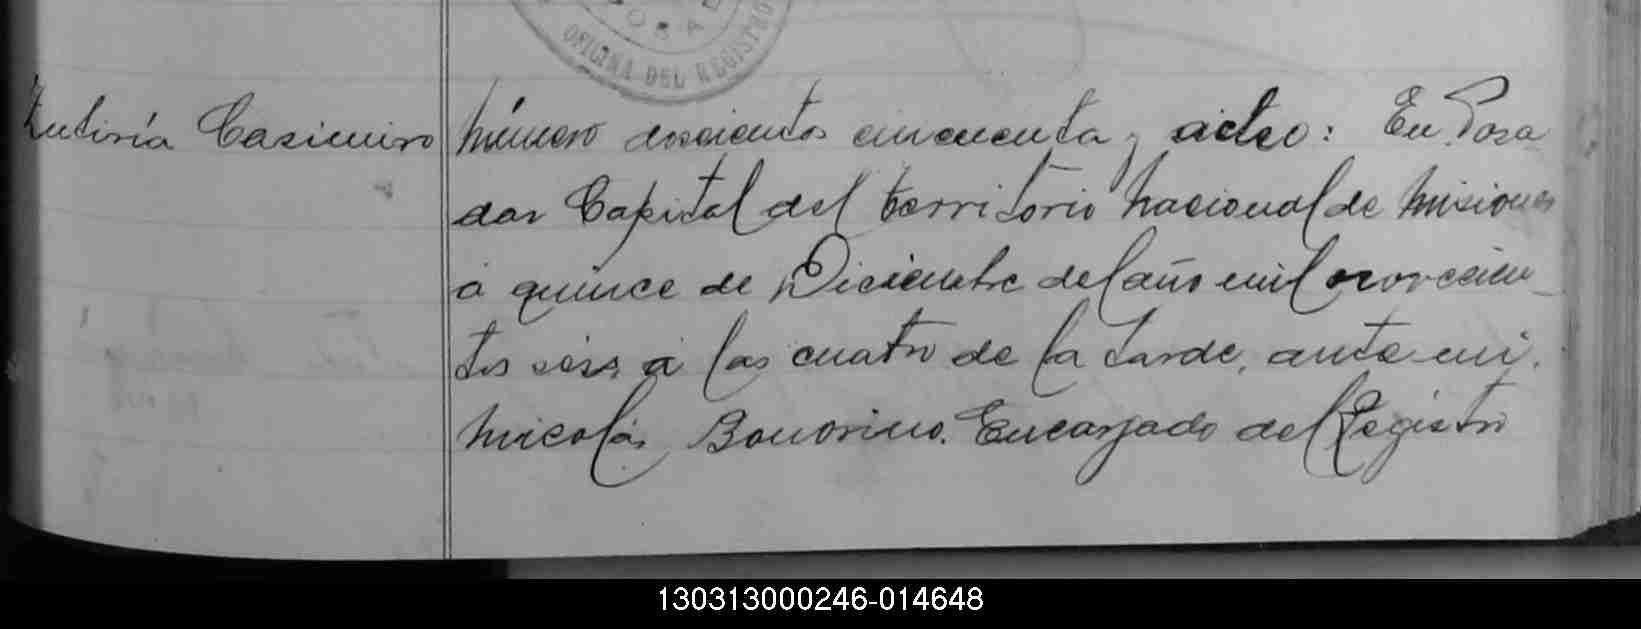 OFICINA DEL REGISTRO
Casimiro
Número doscientos cincuenta y ocho: En Posa
das Capital del territorio Nacional de Misiones
á quince de Diciembre del año mil novecien-
tos seis á las cuatro de la tarde, ante mi.
Nicolás Bonorino. Encargado del Registro
130313000246-014648